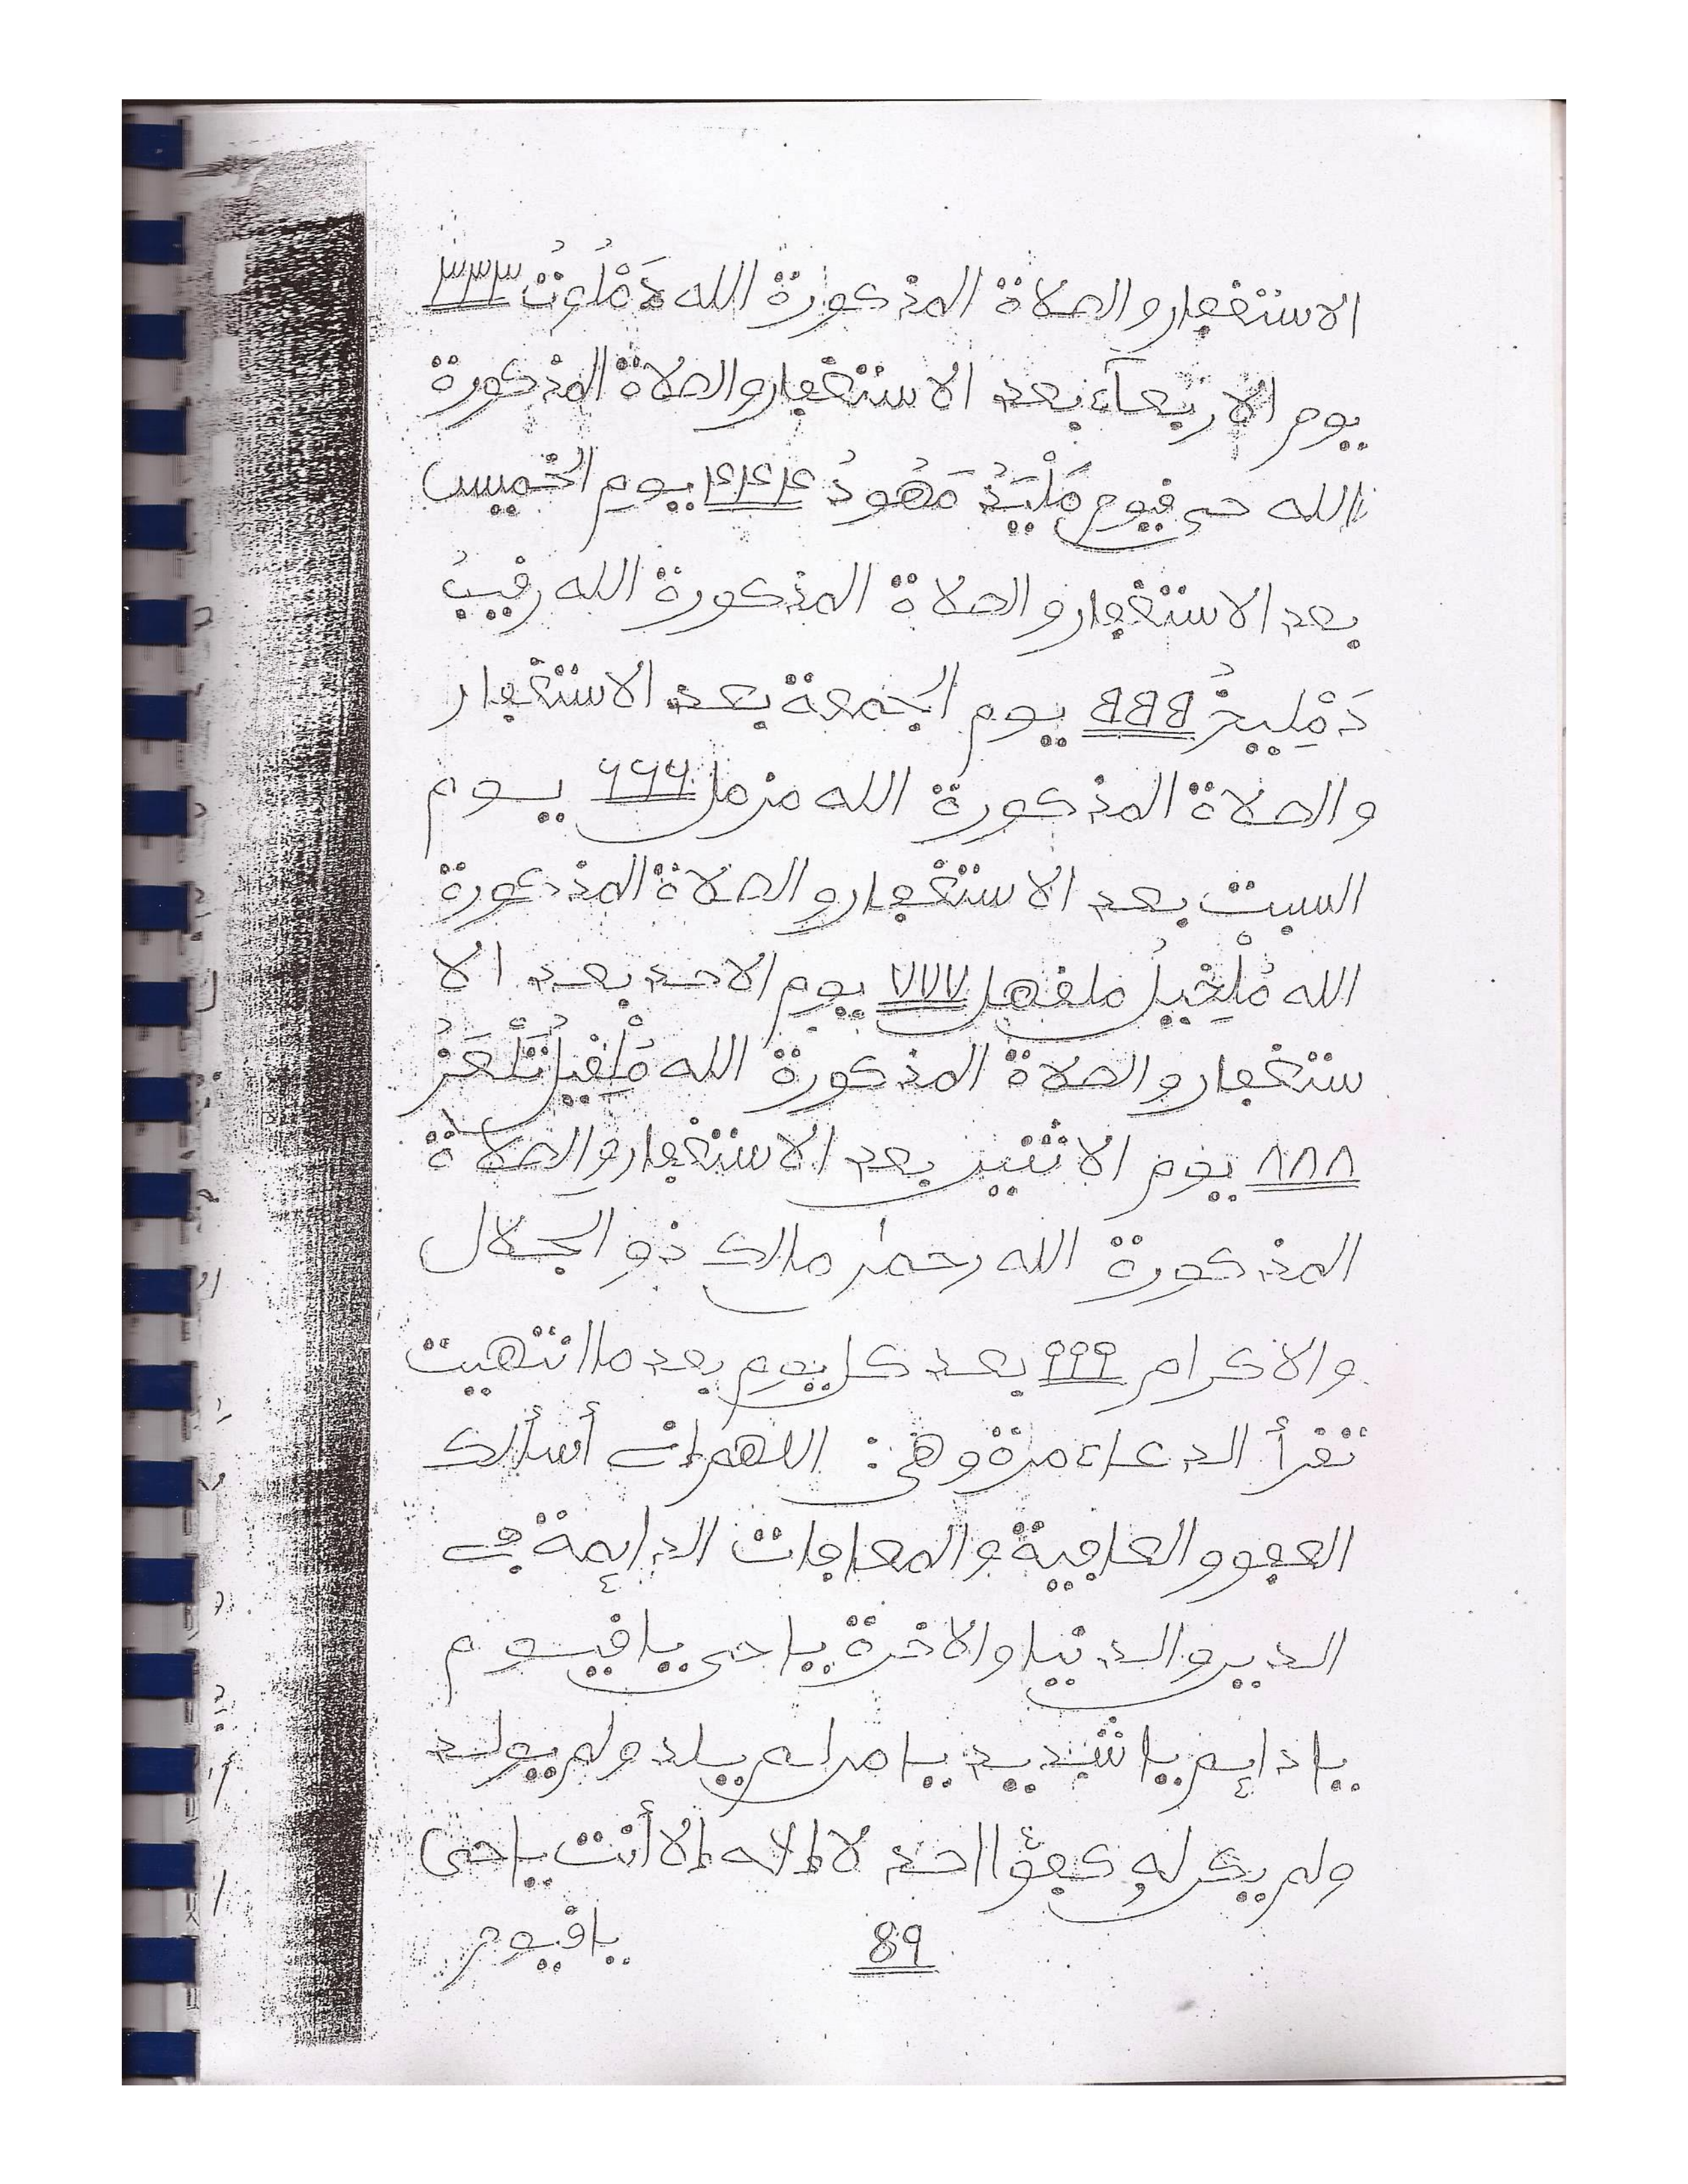 الاستغفار والصلاة المذكورة الله دَمْلُوتُ ٣٣٣
يوم الاربعآء بعد الاستغفار والصلاة المذكورة
الله حي قيوم مَلْيَدُ مَهُودُ ٤٤٤ يوم الخميس
بعد الاستغفار والصلاة المذكورة الله رقيبُ
دَمْلِيخُ ٥٥٥ يوم الجمعة بعد الاستغفار
والصلاة المذكورة الله مزمل ٦٦٦ يوم
السبت بعد الاستغفار والصلاة المذكورة
الله مُلْخِيلُ ملفهل ٧٧٧ يوم الاحد بعد الا
ستغفار والصلاة المذكورة الله مُلْقِيلُ
٨٨٨ يوم الاثنين بعد الاستغفار والصلاة
المذكورة الله رحمن مالك ذو الجلال
والاكرام ٩٩٩ بعد كل يوم بعد ما انتهيت
تقرأ الدعاء مرة وهي: اللهم إني أسألك
العفو والعافية والمعافات الدايمة في
الدين والدنيا والاخرة يا حي يا قيوم
يا دايم يا شديد يا من لم يلد ولم يولد
ولم يكن له كفؤا احد لا إلاه إلا أنت يا حي
89 يا قيوم